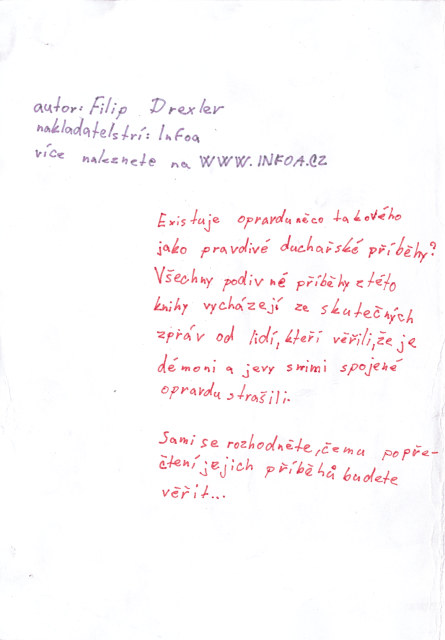 autor: Filip Drexler
nakladatelství: Infoa
více naleznete na WWW.INFOA.CZ
Existuje opravdu něco takového
jako pravdivé duchařské příběhy?
Všechny podivné příběhy z této
knihy vycházejí ze skutečných
zpráv od lidí, kteří věřili, že je
démoni a jevy s nimi spojené
opravdu strašili.
Sami se rozhodněte, čemu po pře-
čtení jejich příběhů budete
věřit...